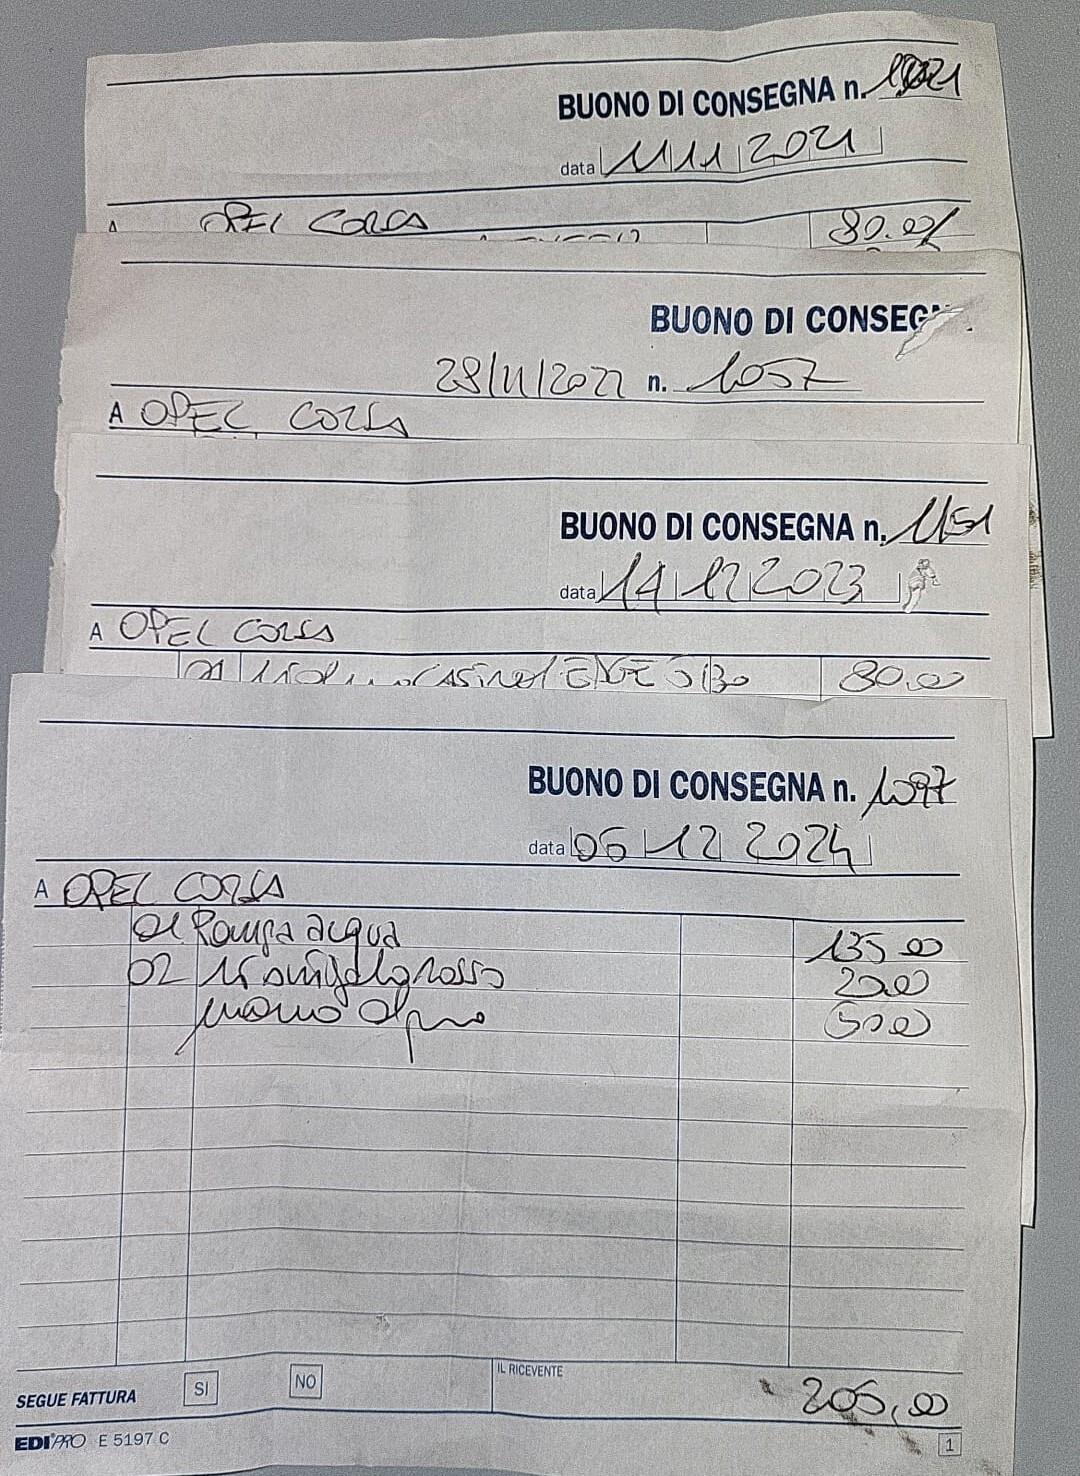 BUONO DI CONSEGNA n.
data 11 11 2021
A OPEL CORSA 80.00
BUONO DI CONSEG
28/11/2022 n. 1057
A OPEL CORSA
BUONO DI CONSEGNA n. 1151
data 14 12 2023
A OPEL CORSA
01 80,00
BUONO DI CONSEGNA n. 1097
data 06 12 2024
A OPEL CORSA
01 Pompa acqua 135 00
02 20.00
mano opra 50 00
SEGUE FATTURA SI NO IL RICEVENTE 205,00
EDIPRO E 5197 C 1